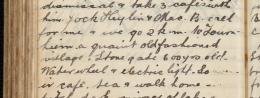 dismissal & take 3 cafes with
him Jock Keylir & Chas. B. call
for me & we go 2 k.m. to Tourn-
hem a quaint old fashioned
village. Stone gate 600 yrs old.
Water wheel & electric light.
in café, tea & walk home -